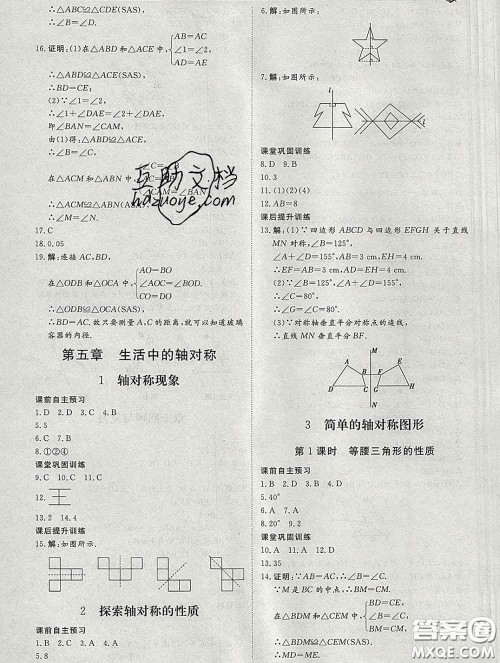 ∴△ABC≌△CDE(SAS),
∴∠B=∠D.
16.证明:(1)在△ABD和△ACE中,{AB=AC
∠1=∠2,
AD=AE
∴△ABD≌△ACE(SAS),
∴BD=CE;
(2)∵∠1=∠2,
∴∠1+∠DAE=∠2+∠DAE,
即∠BAN=∠CAM,
由(1)得:△ABD≌△ACE,
∴∠B=∠C,
在△ACM和△ABN中,{∠C=∠B
∠CAM=∠BAN
∴∠M=∠N.
17.C
18.0.05
19.解:连接AC,BD,
在△ODB和△OCA中,{AO=BO
∠AOC=∠BOD,
DO=CO
∴△ODB≌△OCA(SAS),
∴BD=AC.故只要测量A、C的距离,就可以知道玻璃容器的内径.
第五章 生活中的轴对称
1 轴对称现象
课前自主预习
1.D 2.D 3.C 4.B
5.5
8.①②④
课堂巩固训练
9.C
10.
王
13.2 14.4
课后提升训练
15.解:如图所示.
2 探索轴对称的性质
课前自主预习
1.B 2.D 3.A 4.A
5.8
6.解:如图所示:
7.解:如图所示:
l
课堂巩固训练
8.D 9.B
10.3
11.(1)(2)(4)
12.AB=8
课后提升训练
13.解:(1)∵四边形ABCD与四边形EFGH关于直线MN对称,∠B=125°,
∠A+∠D=155°,AB=3 cm,EH=4 cm.
∴EF=AB=3 cm,AD=EH=4 cm.
(2)∵∠B=125°,∠A+∠D=155°,
∴∠C=80°,
∴∠G=∠C=80°.
(3)∵对称轴垂直平分对称点的连线,
∴直线MN垂直平分BF.
M
A
E
B
F
D
C
G
H
N
3 简单的轴对称图形
第1课时 等腰三角形的性质
课前自主预习
1.B 2.A 3.D 4.D
5.40°
6.70° 7.9
8.20° 9.25°
课堂巩固训练
13.35
14.证明:∵AB=AC,∴∠B=∠C.
∵M是BC的中点,∴BM=CM.
在△BDM和△CEM中,{BD=CE
∠B=∠C,
BM=CM
∴△BDM≌△CEM(SAS),
∴MD=ME.
互助文档
hdzuoye.com
答案圈
MXQE.COM